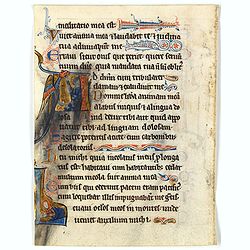 meditatio mea est
Vivet anima mea et laudabit te et iudicia
tua adiuvabunt me
Erravi sicut ovis que periit quere servum
tuum quia mandata tua non sum oblitus
Ad dominum cum tribularer
clamavi et exaudivit me
Domine libera animam meam
a labiis iniquis et a lingua dolosa
Quid detur tibi aut quid apponatur
tibi ad linguam dolosam
Sagitte potentis acute cum carbonibus
desolatoriis
Heu michi quia incolatus meus prolongatus
est habitavi cum habitantibus cedar
multum incola fuit anima mea
Cum hiis qui oderunt pacem eram pacificus
cum loquebar illis impugnabant me gratis
Levavi oculos meos in montes unde
veniet auxilium michi